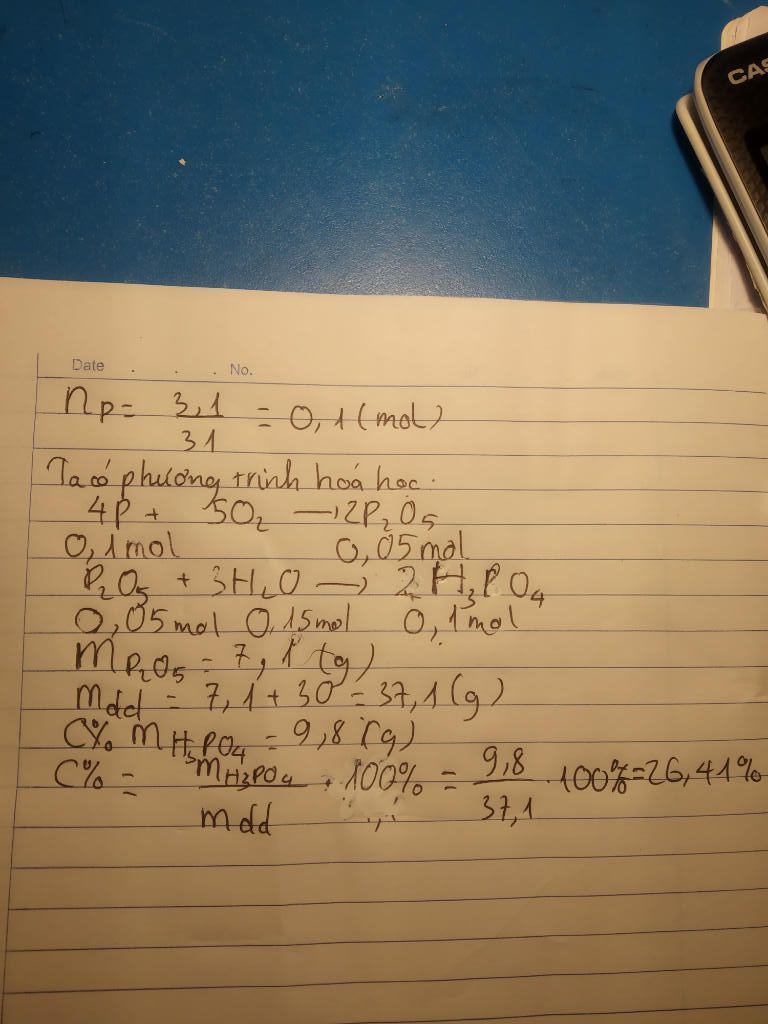 CAS
Date . . . No.
n_P = 3,1/31 = 0,1 (mol)
Ta có phương trình hoá học:
4P + 5O₂ → 2P₂O₅
0,1mol 0,05mol
P₂O₅ + 3H₂O → 2H₃PO₄
0,05mol 0,15mol 0,1mol
m_P₂O₅ = 7,1 (g)
mdd = 7,1 + 30 = 37,1 (g)
C% m_H₃PO₄ = 9,8 (g)
C% = m_H₃PO₄/mdd . 100% = 9,8/37,1 . 100% = 26,41%